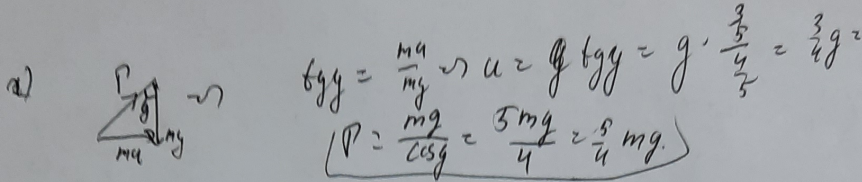 a) P y mg ma ⇒ tgy = ma/mg ⇒ a = g tgy = g · (3/5)/(4/5) = 3/4 g =
P = mg/cosy = 5mg/4 = 5/4 mg.